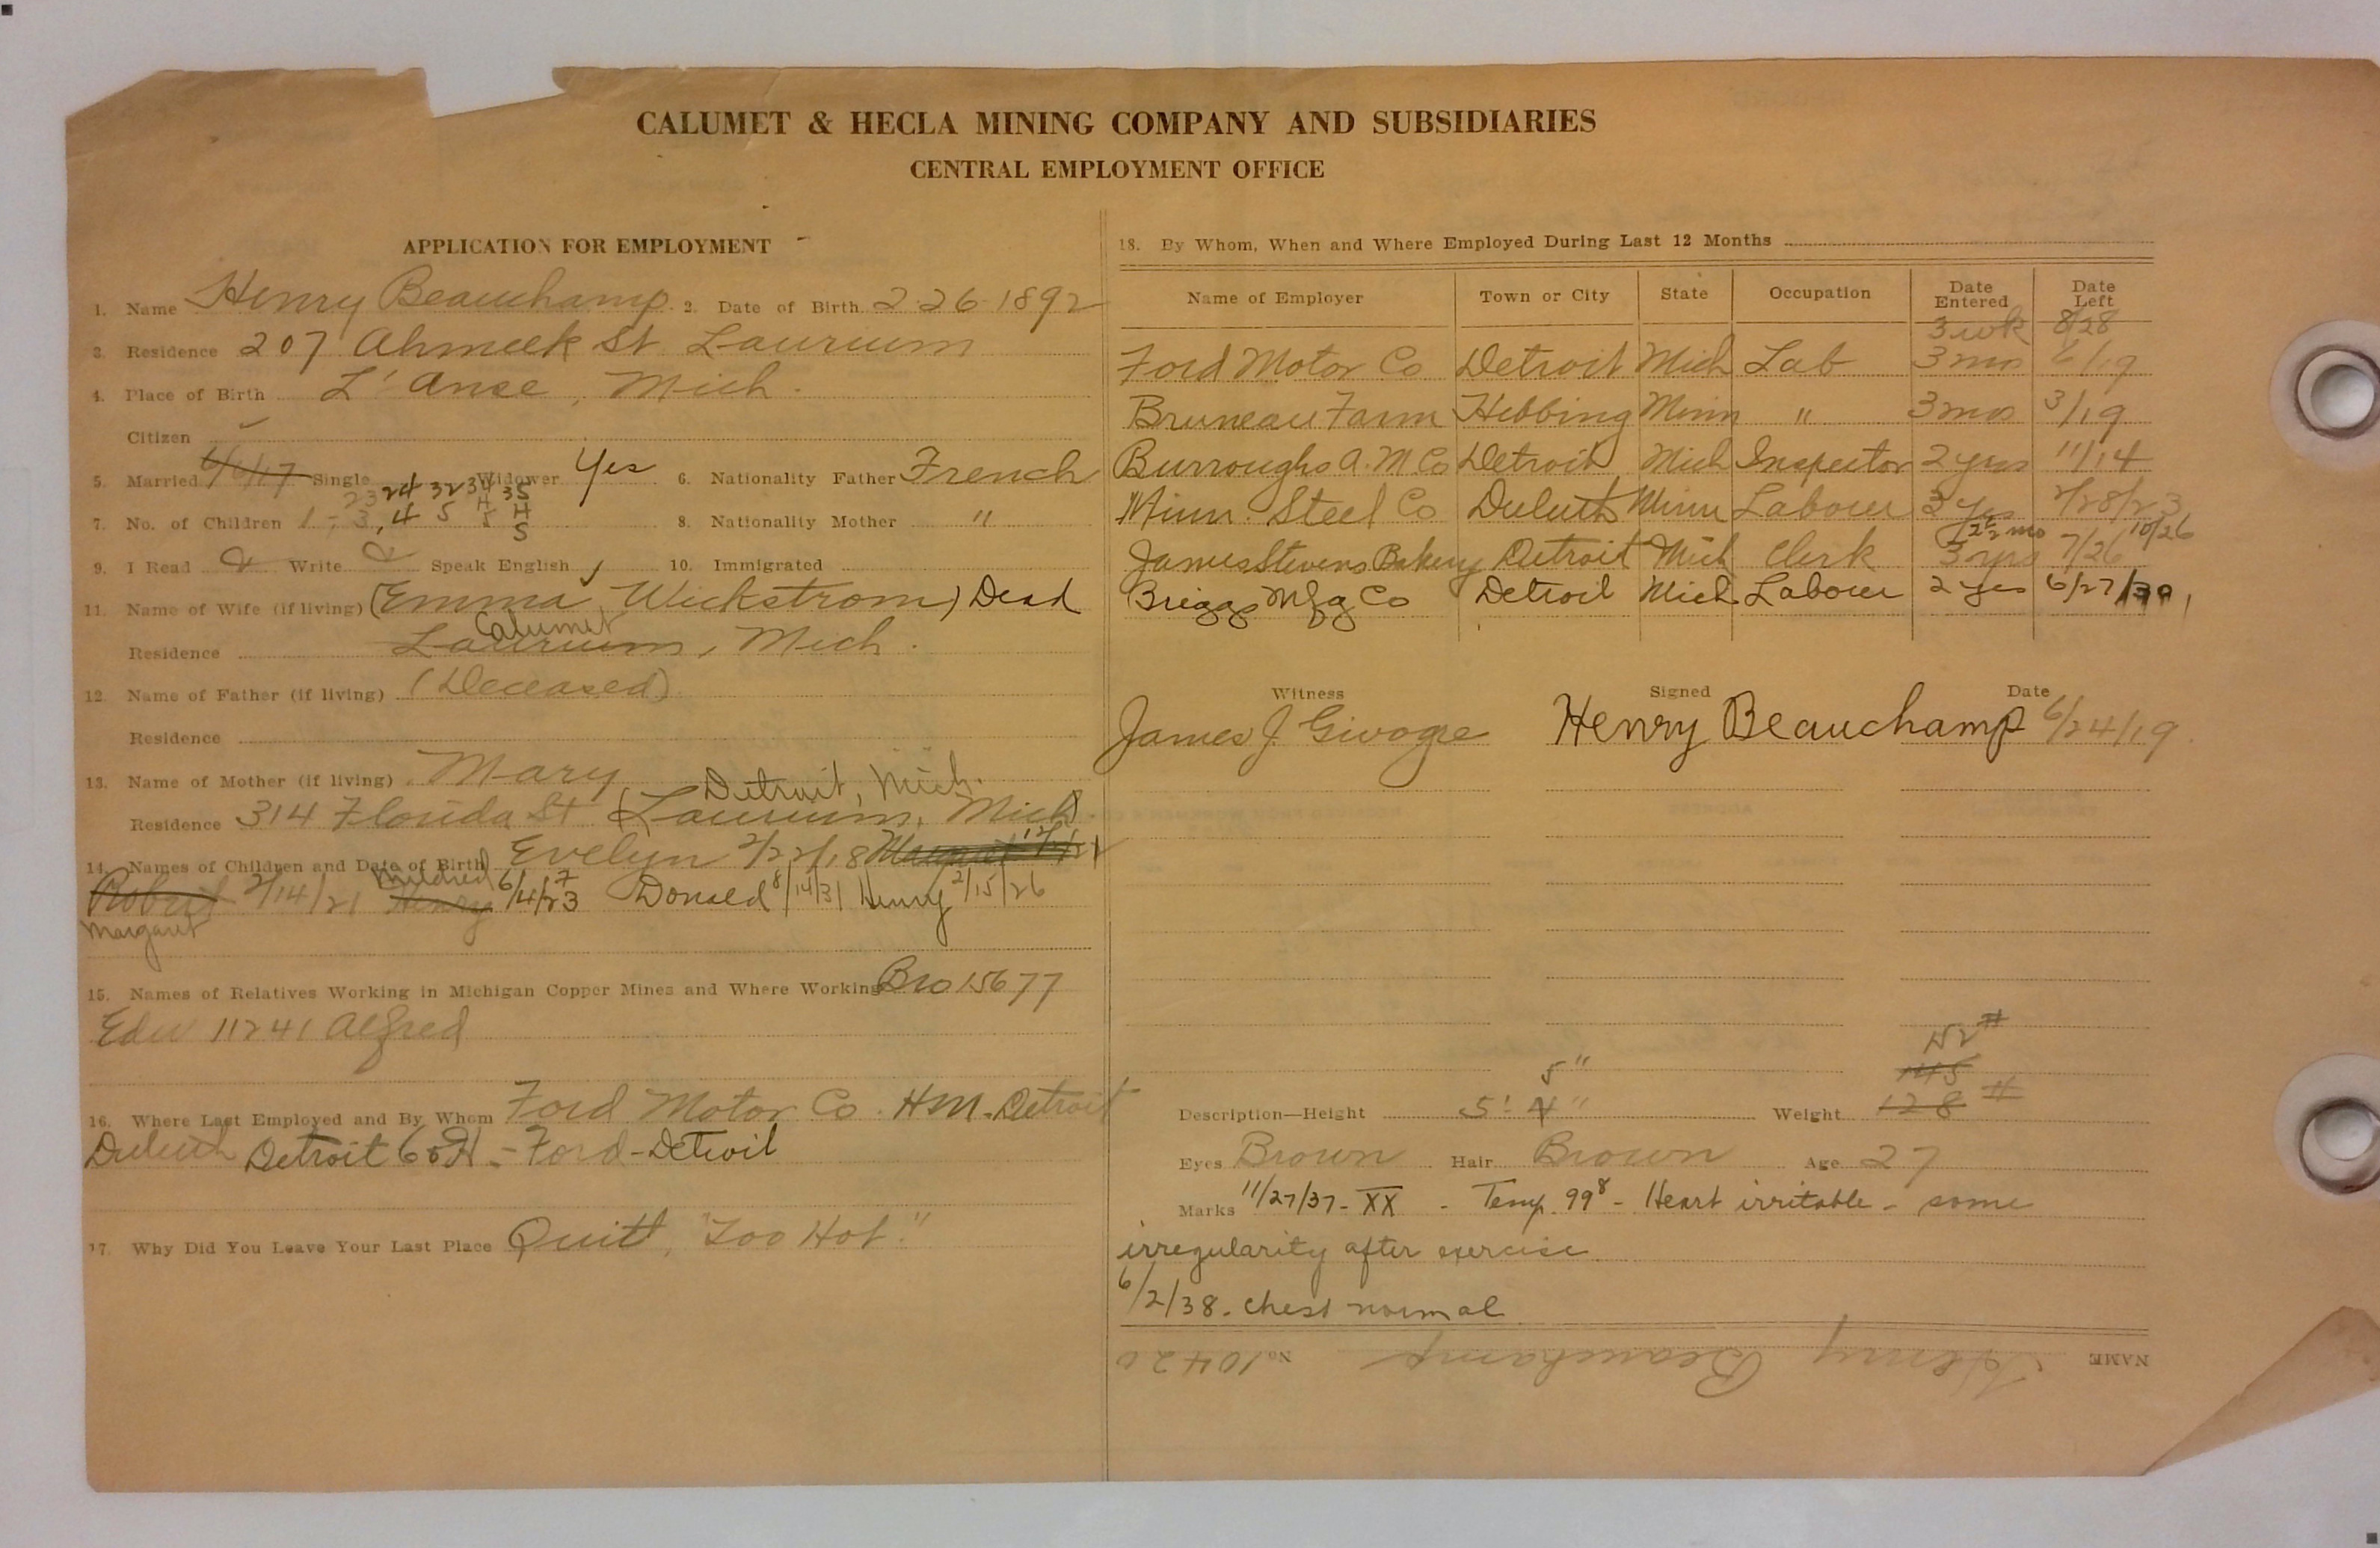 CALUMET & HECLA MINING COMPANY AND SUBSIDIARIES
CENTRAL EMPLOYMENT OFFICE
APPLICATION FOR EMPLOYMENT
1. Name Henry Beauchamp. 2. Date of Birth 2-26-1892
3. Residence 207 Ahmeek St Laurium
4. Place of Birth L'Anse, Mich.
Citizen ✓
5. Married 6/6/17 Single Widower Yes 6. Nationality Father French
23 24 32 34 35
7. No. of Children 1 - 3, 4 5 5 H 8. Nationality Mother "
S
9. I Read Write Speak English y 10. Immigrated
11. Name of Wife (if living) (Emma Wickstrom) Dead
Calumet
Residence Laurium, Mich.
12. Name of Father (if living) (Deceased)
Residence
13. Name of Mother (if living) Mary
Detroit, Mich.
Residence 314 Florida St (Laurium, Mich)
14. Names of Children and Date of Birth Evelyn 2/22/18 Margaret
Mildred 7
Robert 2/14/21 Henry 6/4/23 Donald 8/14/31 Henry 2/15/26
Margaret
15. Names of Relatives Working in Michigan Copper Mines and Where Working Bro 15677
Edw 11241 Alfred
16. Where Last Employed and By Whom Ford Motor Co. HM. Detroit
Duluth Detroit - Ford - Detroit
17. Why Did You Leave Your Last Place Quitt, "Too Hot."
18. By Whom, When and Where Employed During Last 12 Months
Name of Employer Town or City State Occupation Date Entered Date Left
3 wk 8/28
Ford Motor Co Detroit Mich Lab 3 mo 6/19
Bruneau Farm Hibbing Minn " 3 mo 3/19
Burroughs A. M Co Detroit Mich Inspector 2 yrs 11/14
Minn. Steel Co Duluth Minn Labourer 3 yrs 2/28/23
2½ mo 10/26
James Stevens Bakery Detroit Mich Clerk 3 mo 7/26
Briggs Mfg Co Detroit Mich Labourer 2 yrs 6/27/30
Witness Signed Date
James J. Givogre Henry Beauchamp 6/24/19
152 #
5" 145
Description—Height 5' 4" Weight 128 #
Eyes Brown Hair Brown Age 27
Marks 11/27/37 - XX - Temp. 99⁸ - Heart irritable - some
irregularity after exercise
6/2/38. Chest normal
NAME Henry Beauchamp No. 10420